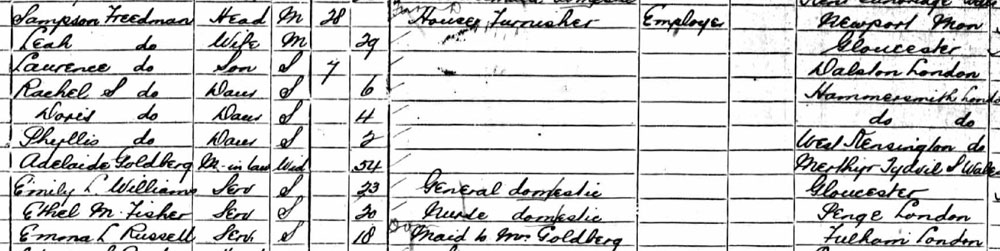 Sampson Freedman Head M 28 House Furnisher Employe Newport Mon
Leah do Wife M 29 Gloucester
Laurence do Son S 7 Dalston London
Rachel S do Daur S 6 Hammersmith Lond
Doris do Daur S 4 do do
Phyllis do Daur S 2 West Kensington do
Adelaide Goldberg M-in law Wid 54 Merthyr Tydvil S Wales
Emily L Williams Serv S 23 General domestic Gloucester
Ethel M. Fisher Serv S 20 Nurse domestic Penge London
Emma L Russell Serv. S 18 Maid to Mrs Goldberg Fulham London